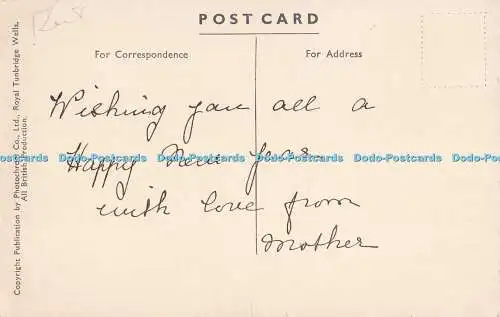 Kent
POST CARD
For Correspondence
For Address
Wishing you all a
Happy New Year
with love from
Mother
Copyright Publication by Photochrom Co., Ltd., Royal Tunbridge Wells,
All British Production.
Dodo-Postcards Dodo-Postcards Dodo-Postcards Dodo-Postcards Dodo-Postcards Dodo-Postcards